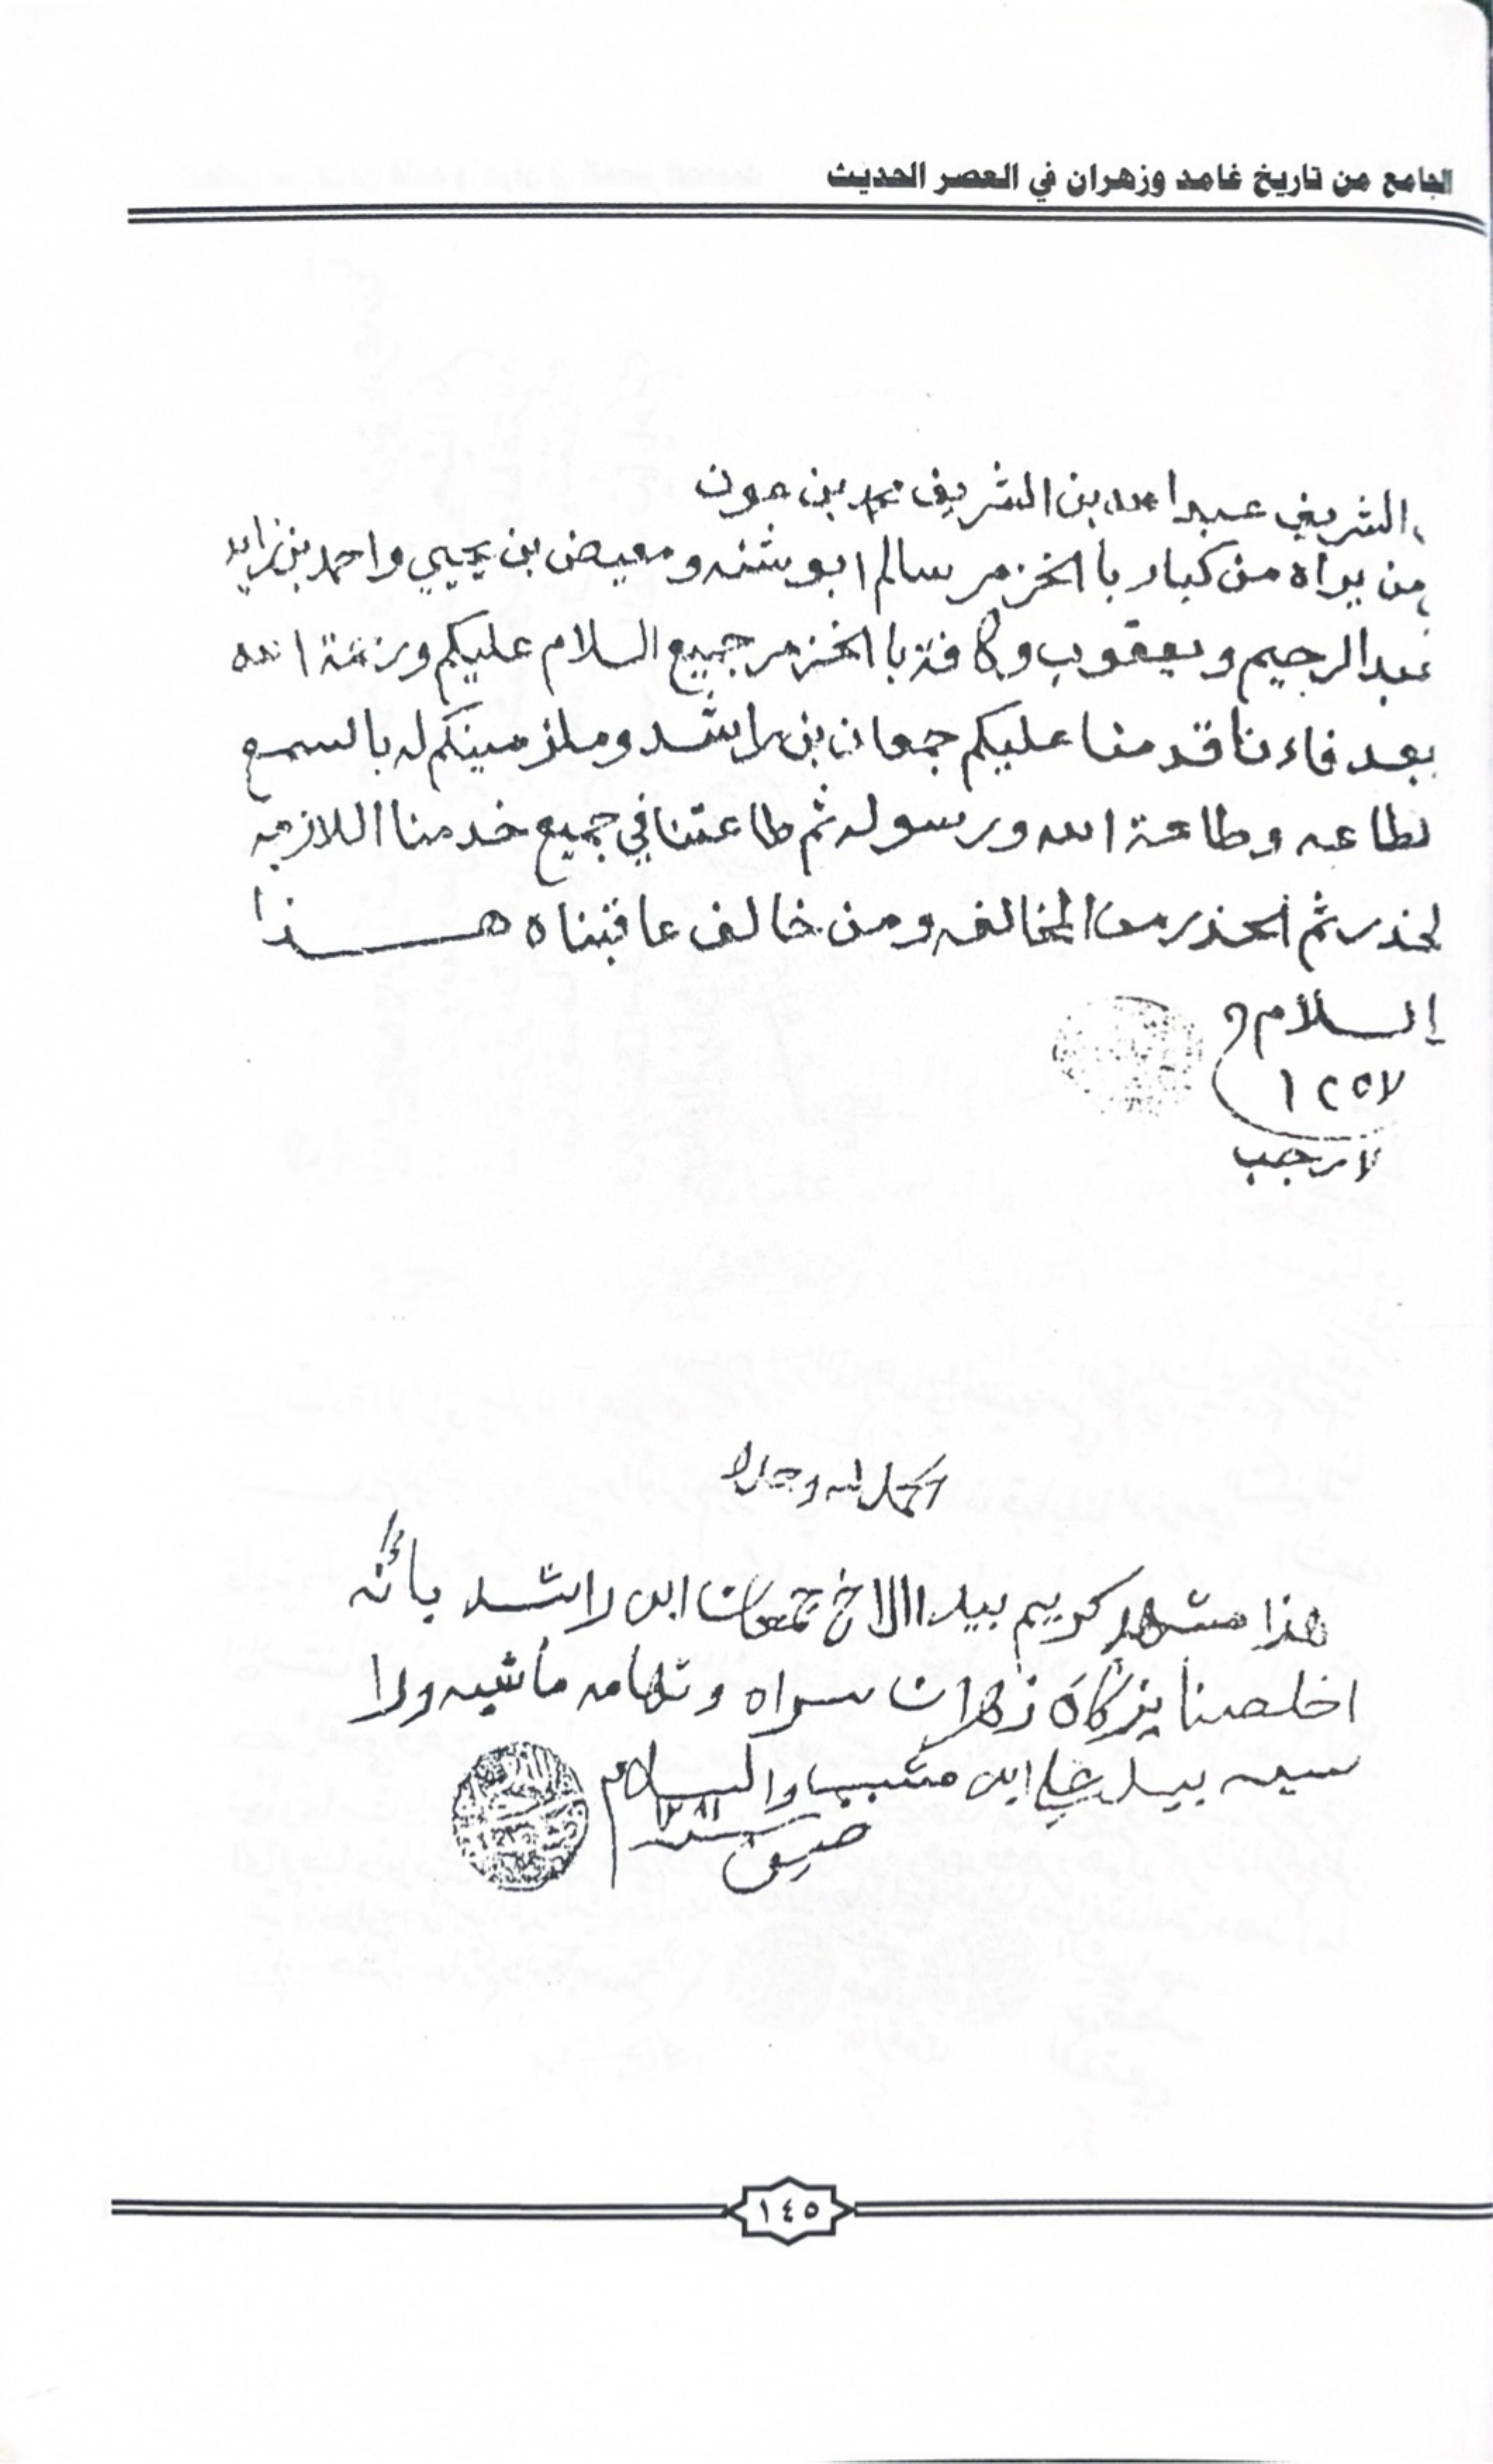 الجامع من تاريخ غامد وزهران في العصر الحديث
الشريف عبدالله بن الشريف محمد بن عون
من يراه من كبار بالخزمر سالم ابو شنه ومعيض بن يحيي واحمد بن زايد
عبدالرحيم ويعقوب وكافة بالخزمر جميع السلام عليكم ورحمة الله
بعد فاءننا قدمنا عليكم جمعان بن راشد وملزمينكم له بالسمع
لطاعه وطاعة الله ورسوله ثم طاعتنا في جميع خدمنا اللازمه
لحذر ثم الحذر من المخالفه ومن خالف عاقبناه هـــذا
السلام
١٢٥٧
٧ رجب
الحمد لله وحده
هذا مشهد كريم بيد الاخ جمعان ابن راشد بأنه
اخلصنا بزكاة زهران سراه وتهامه ماشيه ولا
بيد علي ابن مشبب والسلام
١٢٨١
١٤٥